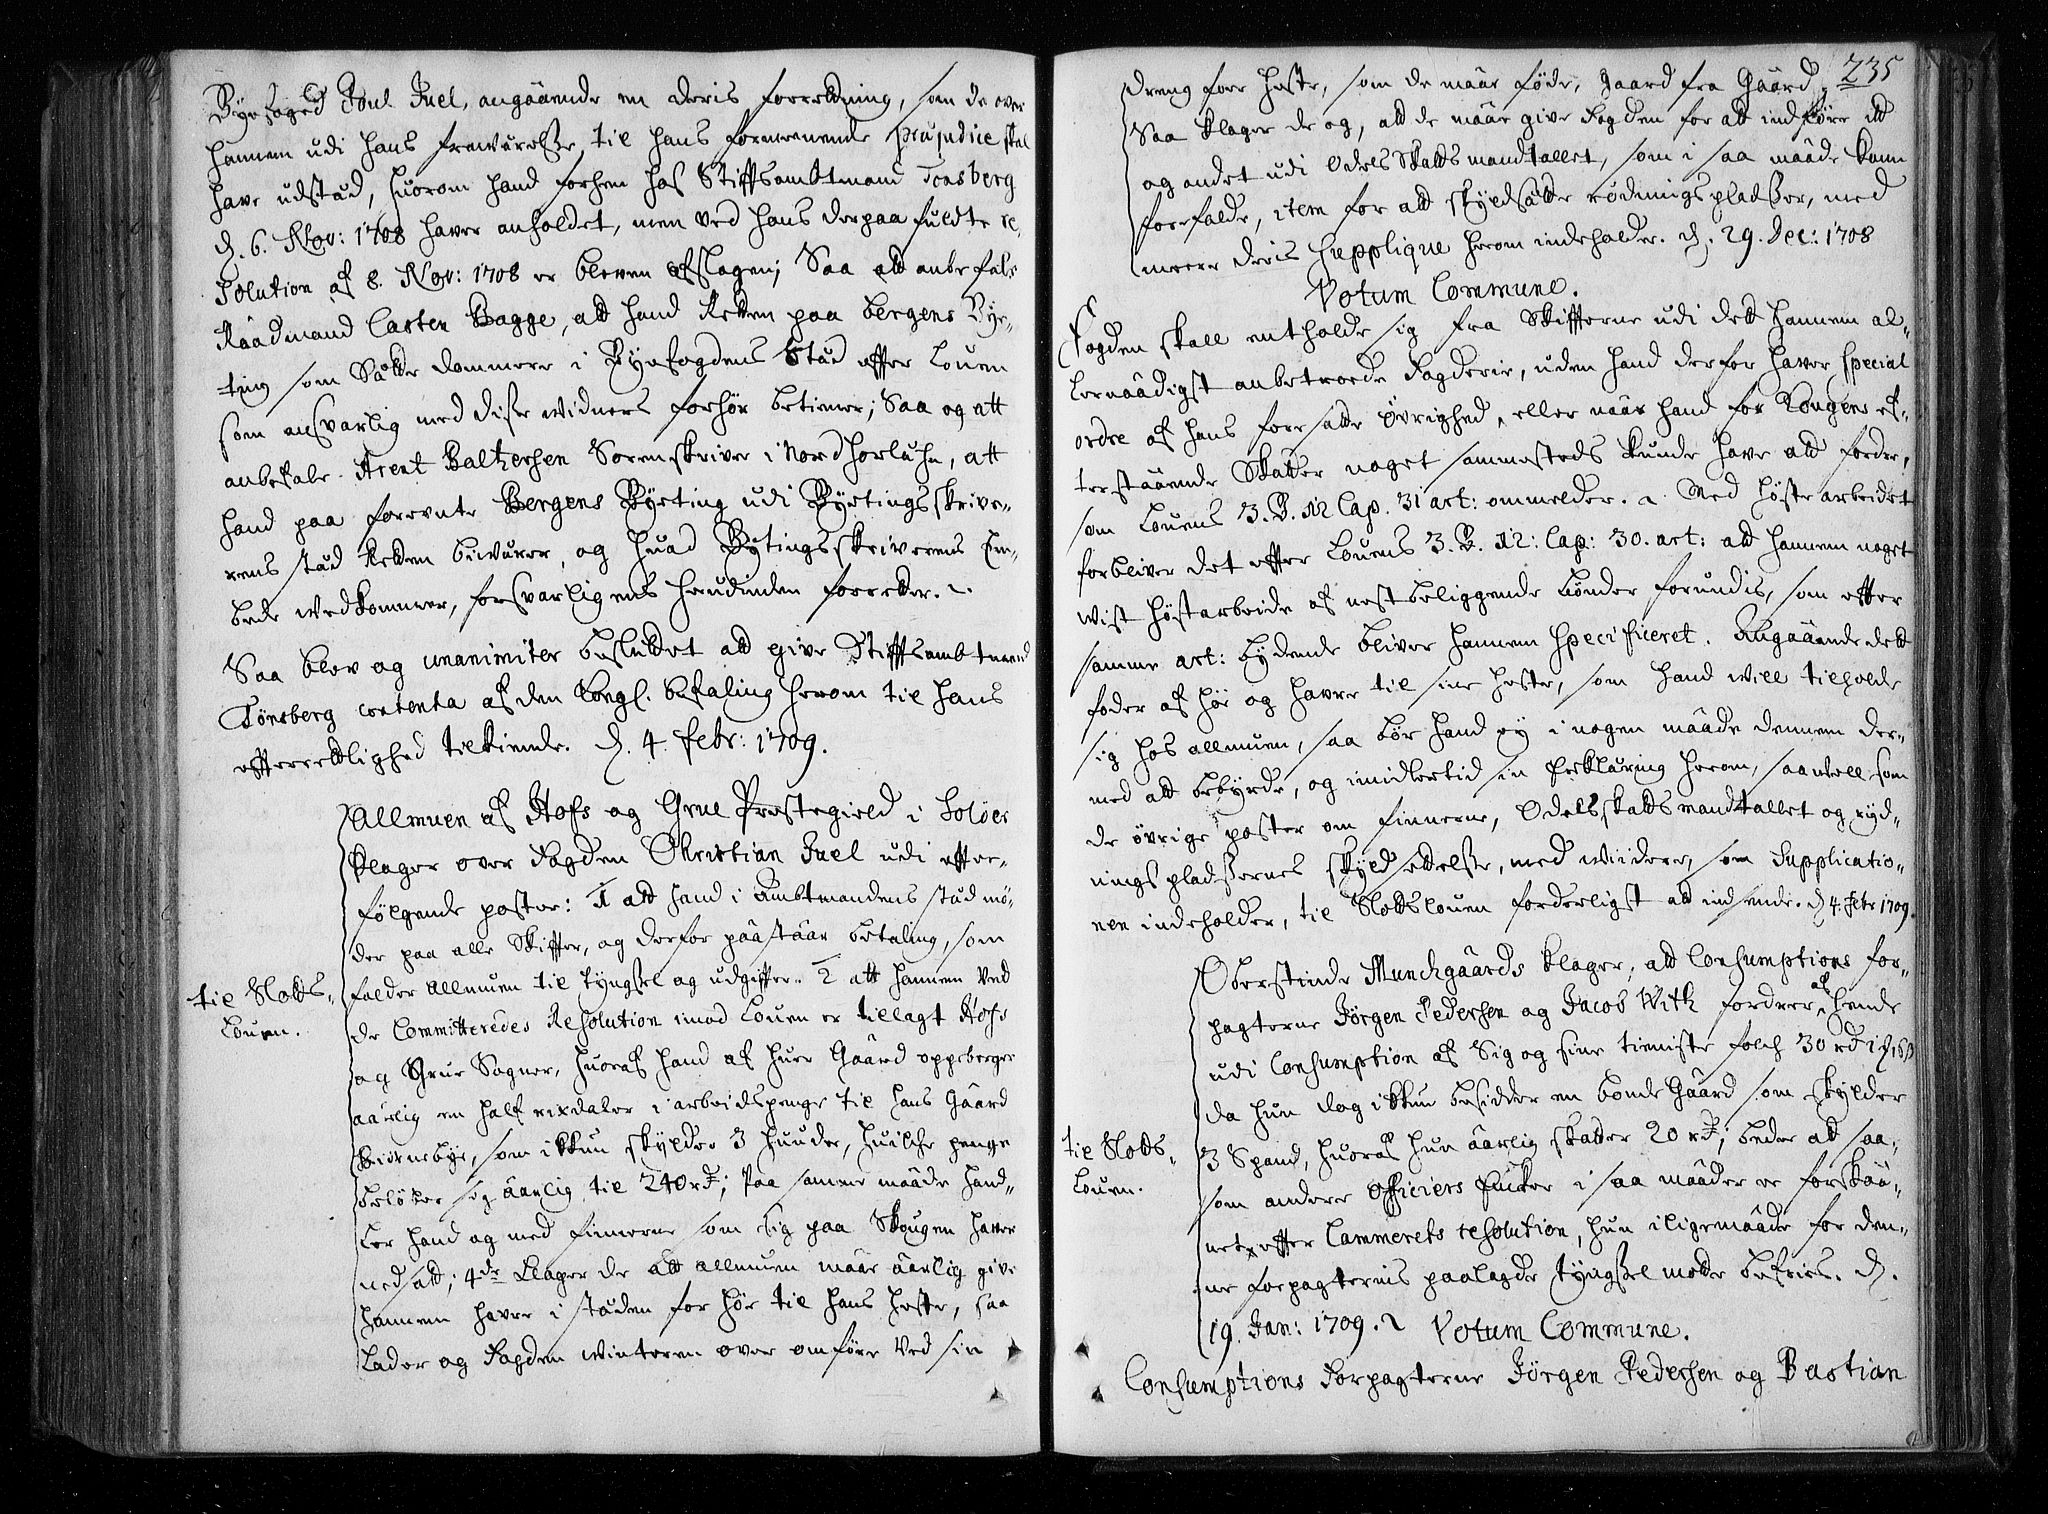 Byefoged Poul Juel, angaaende en deris forretning, som de over
hannem udi hans frawærelse til hans formeenende præjudice skal
have udstæd, huorom hand forhen hos Stifftsambtmand Tonsberg
d. 6. Nov: 1708 haver anholdet, men ved hans derpaa fuldte re-
solution af 8. Nov: 1708 er bleven afslagen; Saa att anbefale
Raadmand Casten Bagge, att hand Retten paa Bergens Bye-
ting som Sætte dommere i Byefogdens Stæd effter Louen
som ansvarlig med disse widners forhör betiener; Saa og att
anbefale Arent Baltzersen Sorenskriver i Nordhorlehn, att
hand paa forevnte Bergens Byeting udi Byetings skrive-
rens stæd Retten biwærer, og huad Bytingsskriverens Em-
bede wedkommer, forsvarligens herudinden forretter.
Saa blev og unanimiter besluttet att give Stifftsambtmand
Tönsberg contenta af den Kongl. befaling herom til hans
effterretlighed tilkiende. d. 4. febr: 1709.
Allmuen af Hofs og Grue Præstegield i Solöer
klager over Fogden Christian Juel udi effter-
fölgende poster: 1 att hand i Ambtmandens stæd mö-
der paa alle Skiffter, og derfor paastaar betaling, som
falder Allmuen til tyngsel og udgiffter. 2 att hannem ved
de Committeredes Resolution imod Louen er tillagt Hofs
og Grue Sogner, huoraf hand af huer Gaard oppeberger
aarlig en half rixdaler i arbeidspenge til hans Gaard
Biörnebye, som ikkun skylder 3 huuder, huilche penge
belöber sig aarlig til 240 rdr; Paa samme maade hand-
ler hand og med finnerne som sig paa Skougen haver
nedsatt; 4de klager de att allmuen maae aarlig give
hannem havre i stæden for höe til hans heste, saa
lader og Fogden winteren over omföre ved sin
til Slotts-
Louen.
235
dreng fore heste, som de maae föde, gaard fra Gaard.
Saa klager de og, att de maae give Fogden for att indföre itt
og andet udi Odels Skatts mandtallet, som i saa maade kann
forefalde, item for att skyldsætte rödningspladser, med
meere deris Supplique herom indeholder. d. 29. Dec: 1708
Votum Commune.
Fogden skall entholde sig fra Skiffterne udi dett hannem al-
lernaadigst anbetroede Fogderie, uden hand derfor haver special
ordre af hans foresatte övrighed, eller naar hand for Kongens ef-
terstaaende Skatter noget sammesteds kunde have att fordre,
som Louens 3. B. 12 Cap. 31 art: ommelder. Med höstarbeidet
forbliver det effter Louens 3. B. 12: Cap: 30. art: att hannem noget
wist höstarbeide af nestbeliggende Bönder forundis, som effter
samme art: lydende bliver hannem Specificeret. Angaaende dett
foder af höe og havre til sine heste, som hand will tilholde
sig hos allmuen, saa bör hand ey i nogen maade dennem der-
med att bebyrde, og imidlertid sin Erklæring herom, saawell som
de övrige poster om finnerne, Odelsskatts mandtallet og ryd-
nings pladsernes skyldsettelse, med widere, som Supplicatio-
nen indeholder, til Slottslouen forderligst att indsende. d. 4. Febr 1709.
Oberstinde Munchgaards klager, att Consumptions for-
pagterne Jörgen Pedersen og Jacob With fordrer af hende
udi Consumption af Sig og sine tieniste folch 30 rdr
da hun dog ikkun besidder en bonde Gaard som skylder
3 Spand, huoraf hun aarlig skatter 20 rdr; beder att saa-
som andere Officiers Encker i saa maader er forskaa-
net effter Cammerets resolution, hun iligemaade for den-
ne forpagternis paalagde tyngsel motte befries. d.
19. Jan: 1709. Votum Commune.
til Slotts-
Louen.
Consumptions Forpagterne Jörgen Pedersen og Bastian